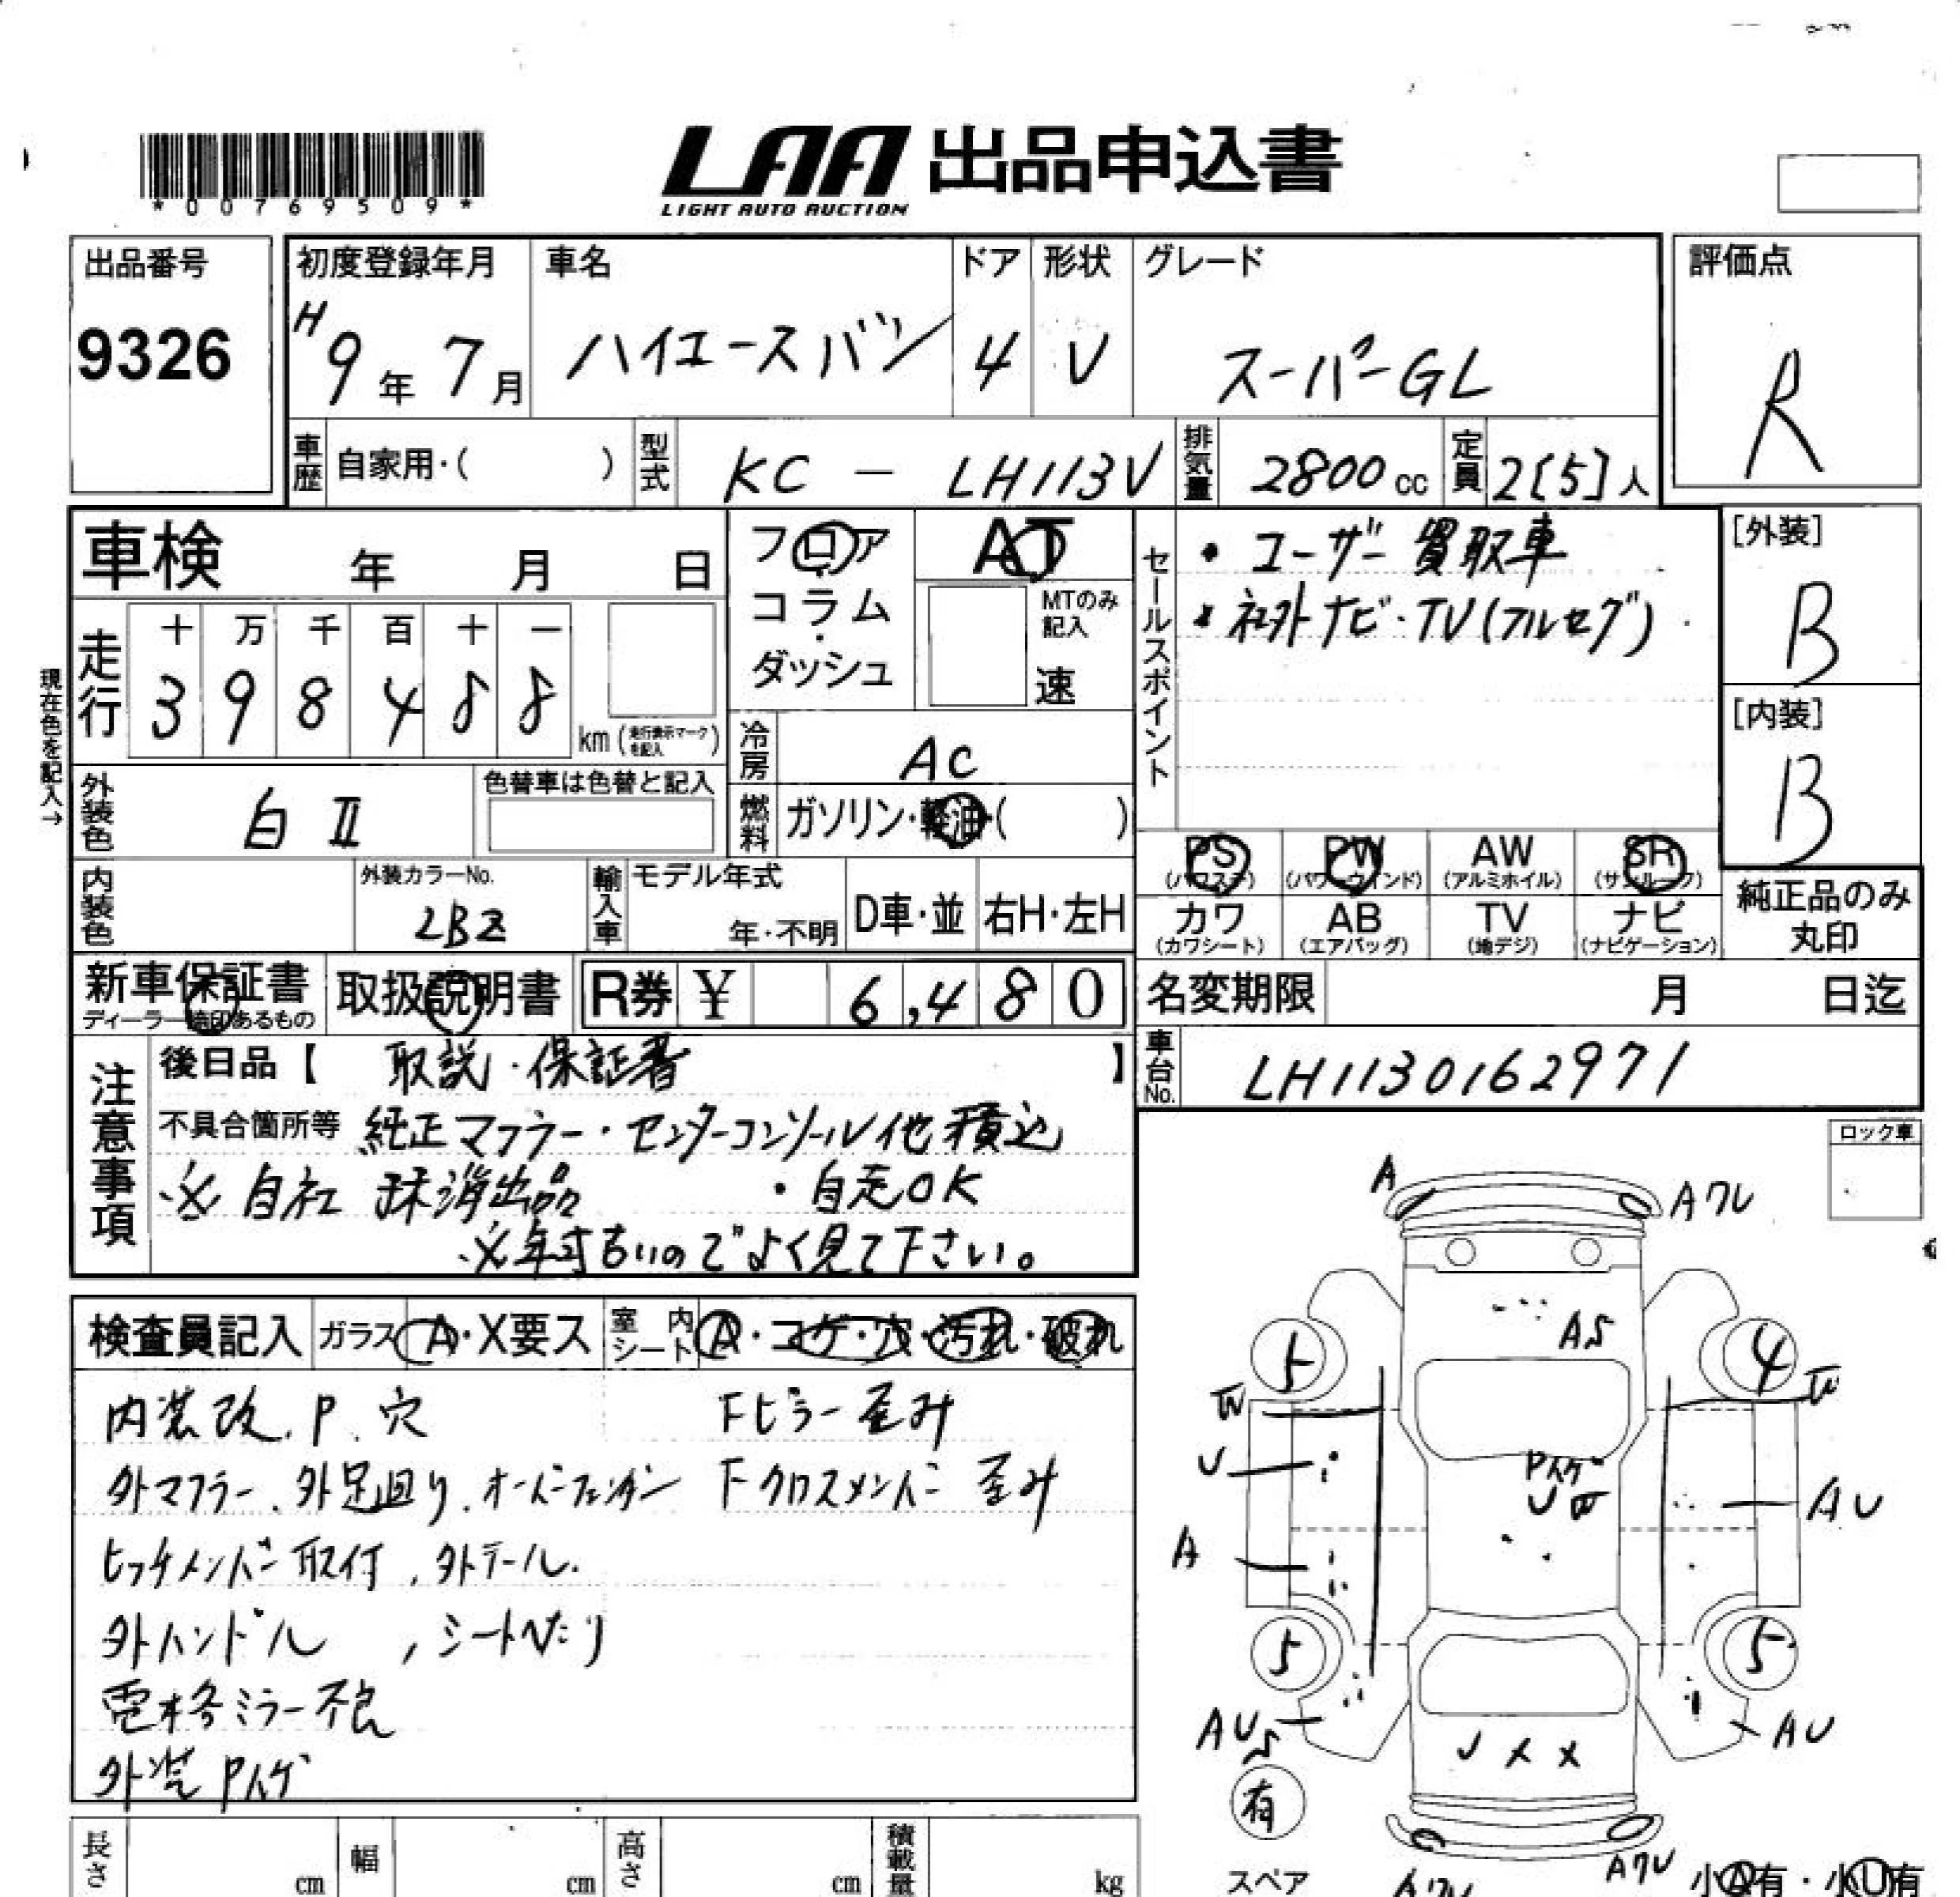 *00769509*
LAA 出品申込書
LIGHT AUTO AUCTION
出品番号
9326
初度登録年月
H9年 7月
車名
ハイエースバン
ドア
4
形状
V
グレード
スーパーGL
評価点
R
車歴 自家用・( )
型式 KC - LH113V
排気量 2800cc
定員 2[5]人
車検 年 月 日
フロア・コラム・ダッシュ
AT
MTのみ記入
速
セールスポイント
・ユーザー買取車
・社外ナビ・TV(フルセグ)
[外装]
B
[内装]
B
現在色を記入→
走行
十 万 千 百 十 一
3 9 8 4 8 8
km (走行表示マークを記入)
冷房 AC
燃料 ガソリン・軽油・( )
外装色 白Ⅱ
色替車は色替と記入
内装色
外装カラーNo.
2BZ
輸入車
モデル年式
年・不明
D車・並
右H・左H
PS (パワステ)
PW (パワーウィンド)
AW (アルミホイル)
SR (サンルーフ)
カワ (カワシート)
AB (エアバッグ)
TV (地デジ)
ナビ (ナビゲーション)
純正品のみ丸印
新車保証書
ディーラー捺印あるもの
取扱説明書
R券 ¥ 6,480
名変期限 月 日迄
車台No. LH1130162971
注意事項
後日品【 取説・保証書 】
不具合箇所等 純正マフラー・センターコンソール他積込
※自社 抹消出品 ・自走OK
※年式古いのでよく見て下さい。
ロック車
検査員記入
ガラス A・X要ス
室内シート A・コゲ・穴・汚れ・破れ
内装改、P、穴 Fピラー歪み
外マフラー、外足回り、オーバーフェンダー Fクロスメンバー歪み
ヒッチメンバー取付、外テール.
外ハンドル ,シートへたり
電格ミラー不良
外装Pハゲ
A
Aワレ
AS
5
4
W
W
U
Pハゲ
U W
AU
A
5
5
AU
AU
U X X
有
スペア
Aワレ
Aワレ
小A有・小U有
長さ cm
幅 cm
高さ cm
積載量 kg